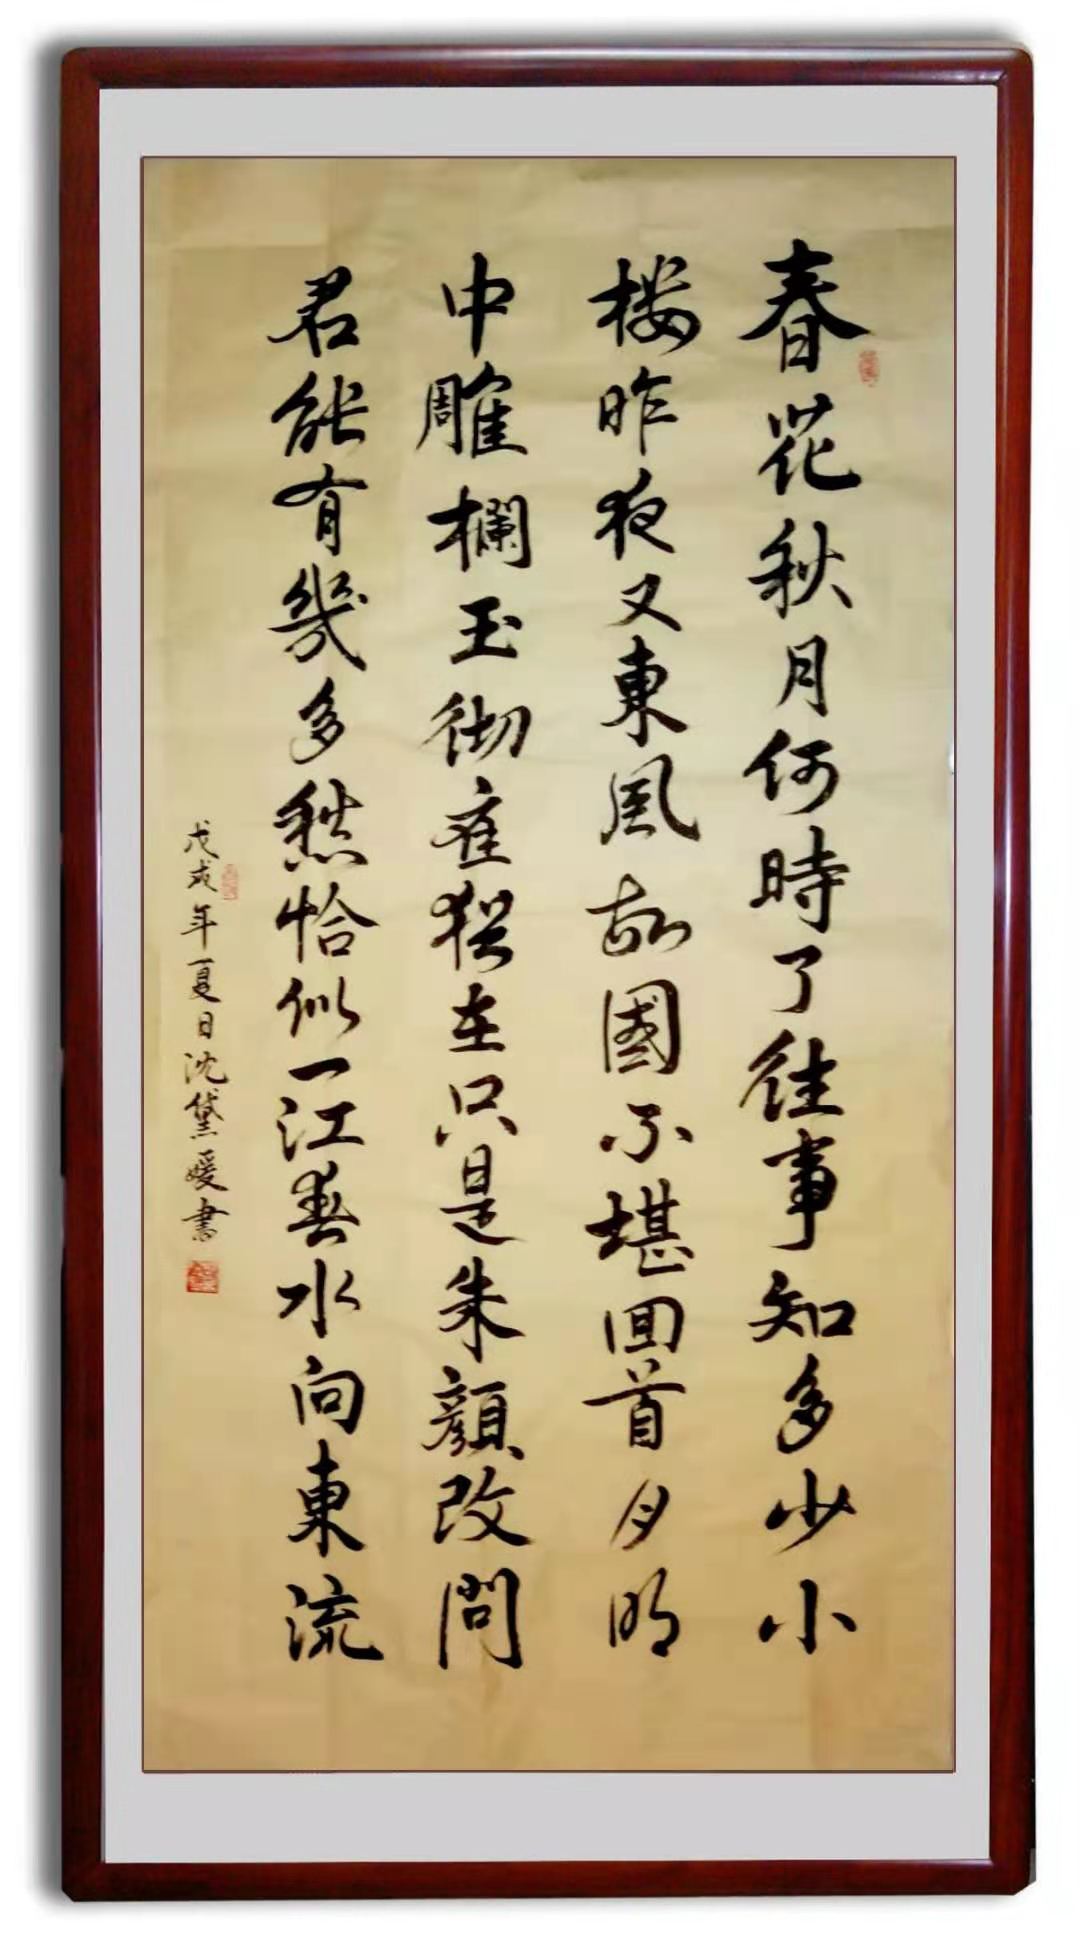 春花秋月何時了往事知多少小
楼昨夜又東風故國不堪回首月明
中雕欄玉彻應猶在只是朱顏改問
君能有幾多愁恰似一江春水向東流
戊戌年夏日沈黛媛書